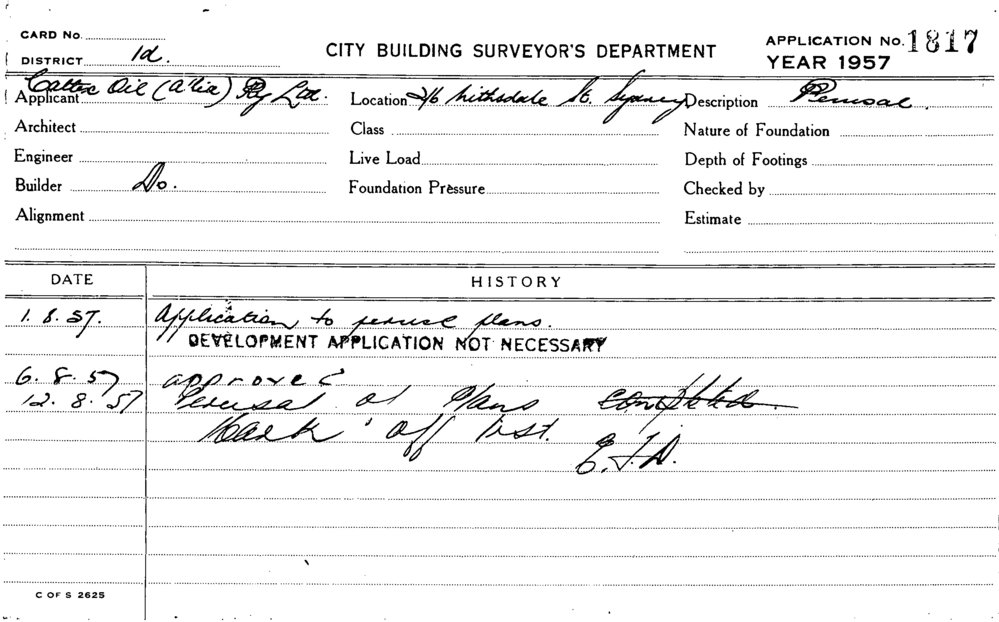 CARD No.
DISTRICT 1d.
CITY BUILDING SURVEYOR'S DEPARTMENT
APPLICATION No. 1817
YEAR 1957
Applicant Caltex Oil (A'lia) Pty Ltd. Location 2/6 Nithsdale St. Sydney Description Perusal.
Architect Class Nature of Foundation
Engineer Live Load Depth of Footings
Builder Do. Foundation Pressure Checked by
Alignment Estimate
DATE HISTORY
1. 8. 57. Application to peruse plans.
DEVELOPMENT APPLICATION NOT NECESSARY
6. 8. 57 approved
12. 8. 57 Perusal of Plans completed.
Mark off list.
E.J.D.
C OF S 2625